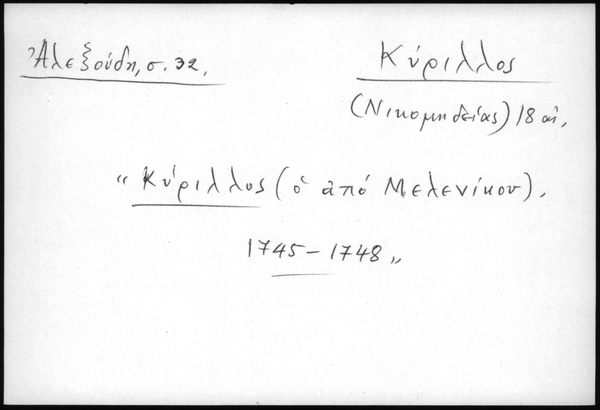 Ἀλεξούδη, σ. 32.
Κύριλλος
(Νικομηδείας) 18 αἰ.
“Κύριλλος (ὁ ἀπό Μελενίκου).
1745 – 1748„